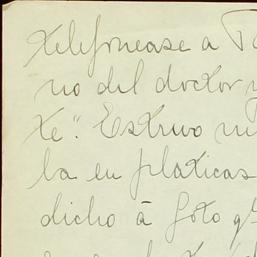 telefonease a
no del doctor
te". Estuvo
la en platicas
dicho á Goto